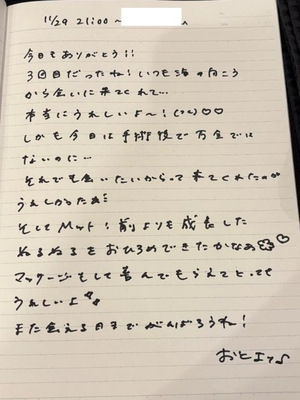 11/29 21:00〜
今日もありがとう!!
3回目だったね!いつも海の向こう
から会いに来てくれて…
本当にうれしいよ〜!♡♡
しかも今日は手術後で万全では
ないのに…
それでも会いたいからって来てくれたのが
うれしかったね
そしてMット!前よりも成長した
ぬるぬるをおひろめできたかなあ♡
マッサージもして喜んでもらえてとっても
うれしいよ
また会える日までがんばろうね!